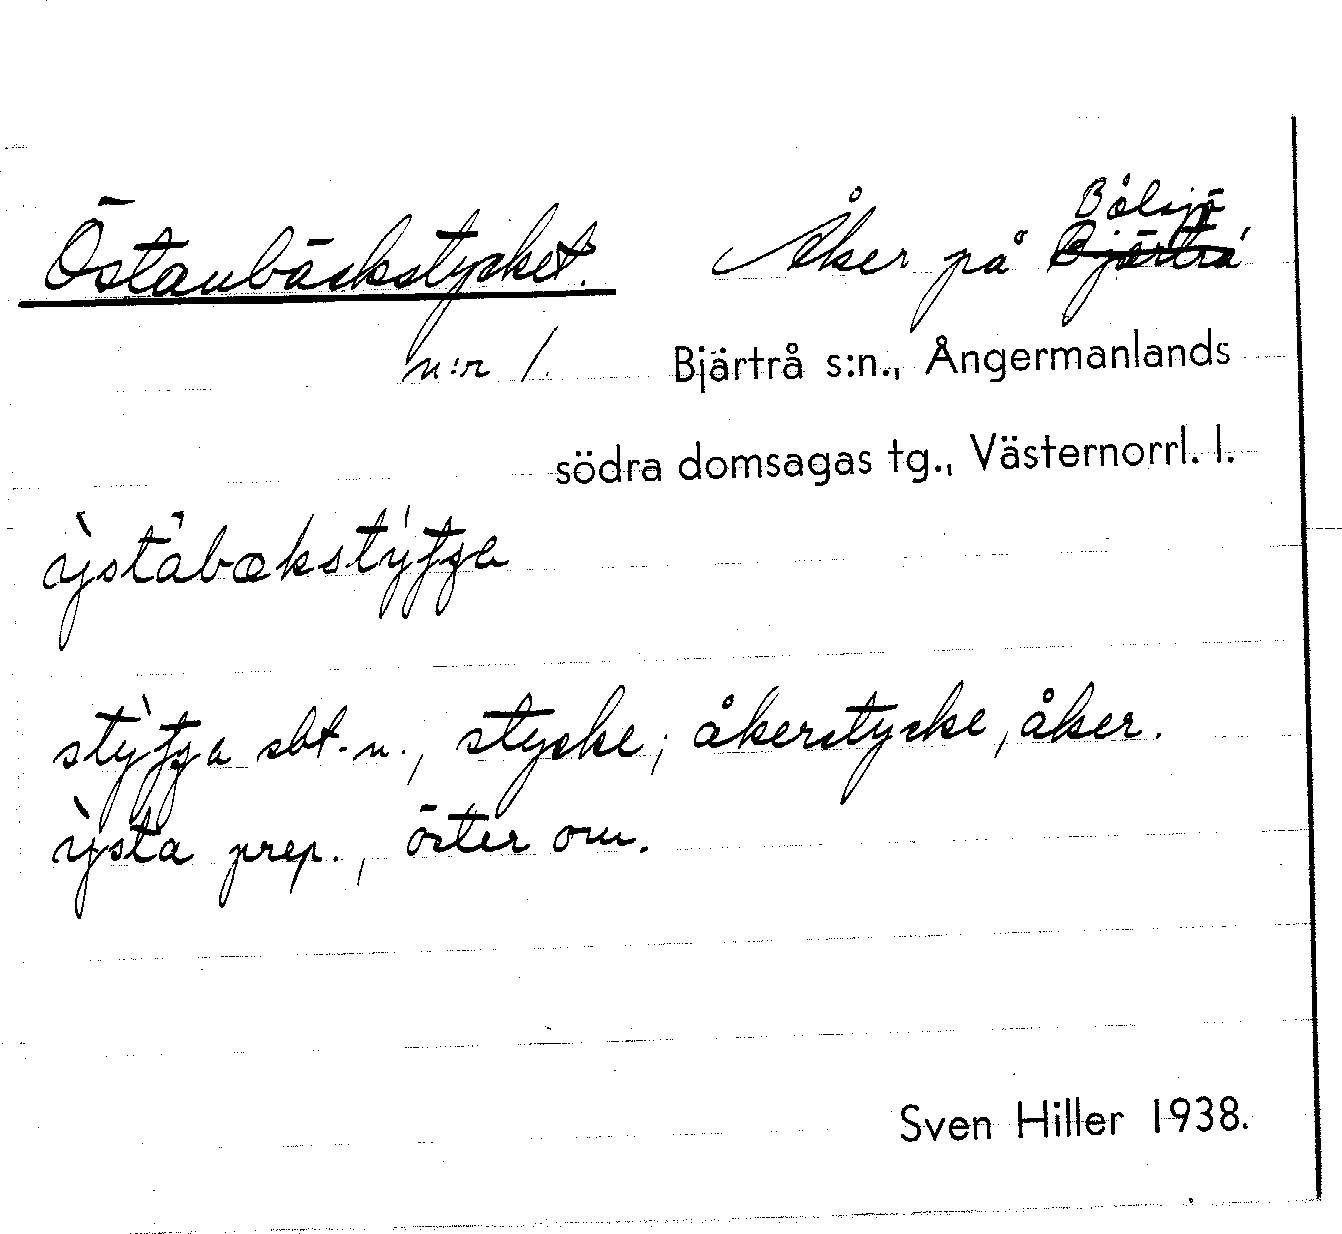 Östanbäckstycket. Åker på Bölsjö Bjärtrå
n:r 1. Bjärtrå s:n., Ångermanlands
södra domsagas tg., Västernorrl. l.
sbt. n., stycke; åkerstycke, åker.
prep., öster om.
Sven Hiller 1938.